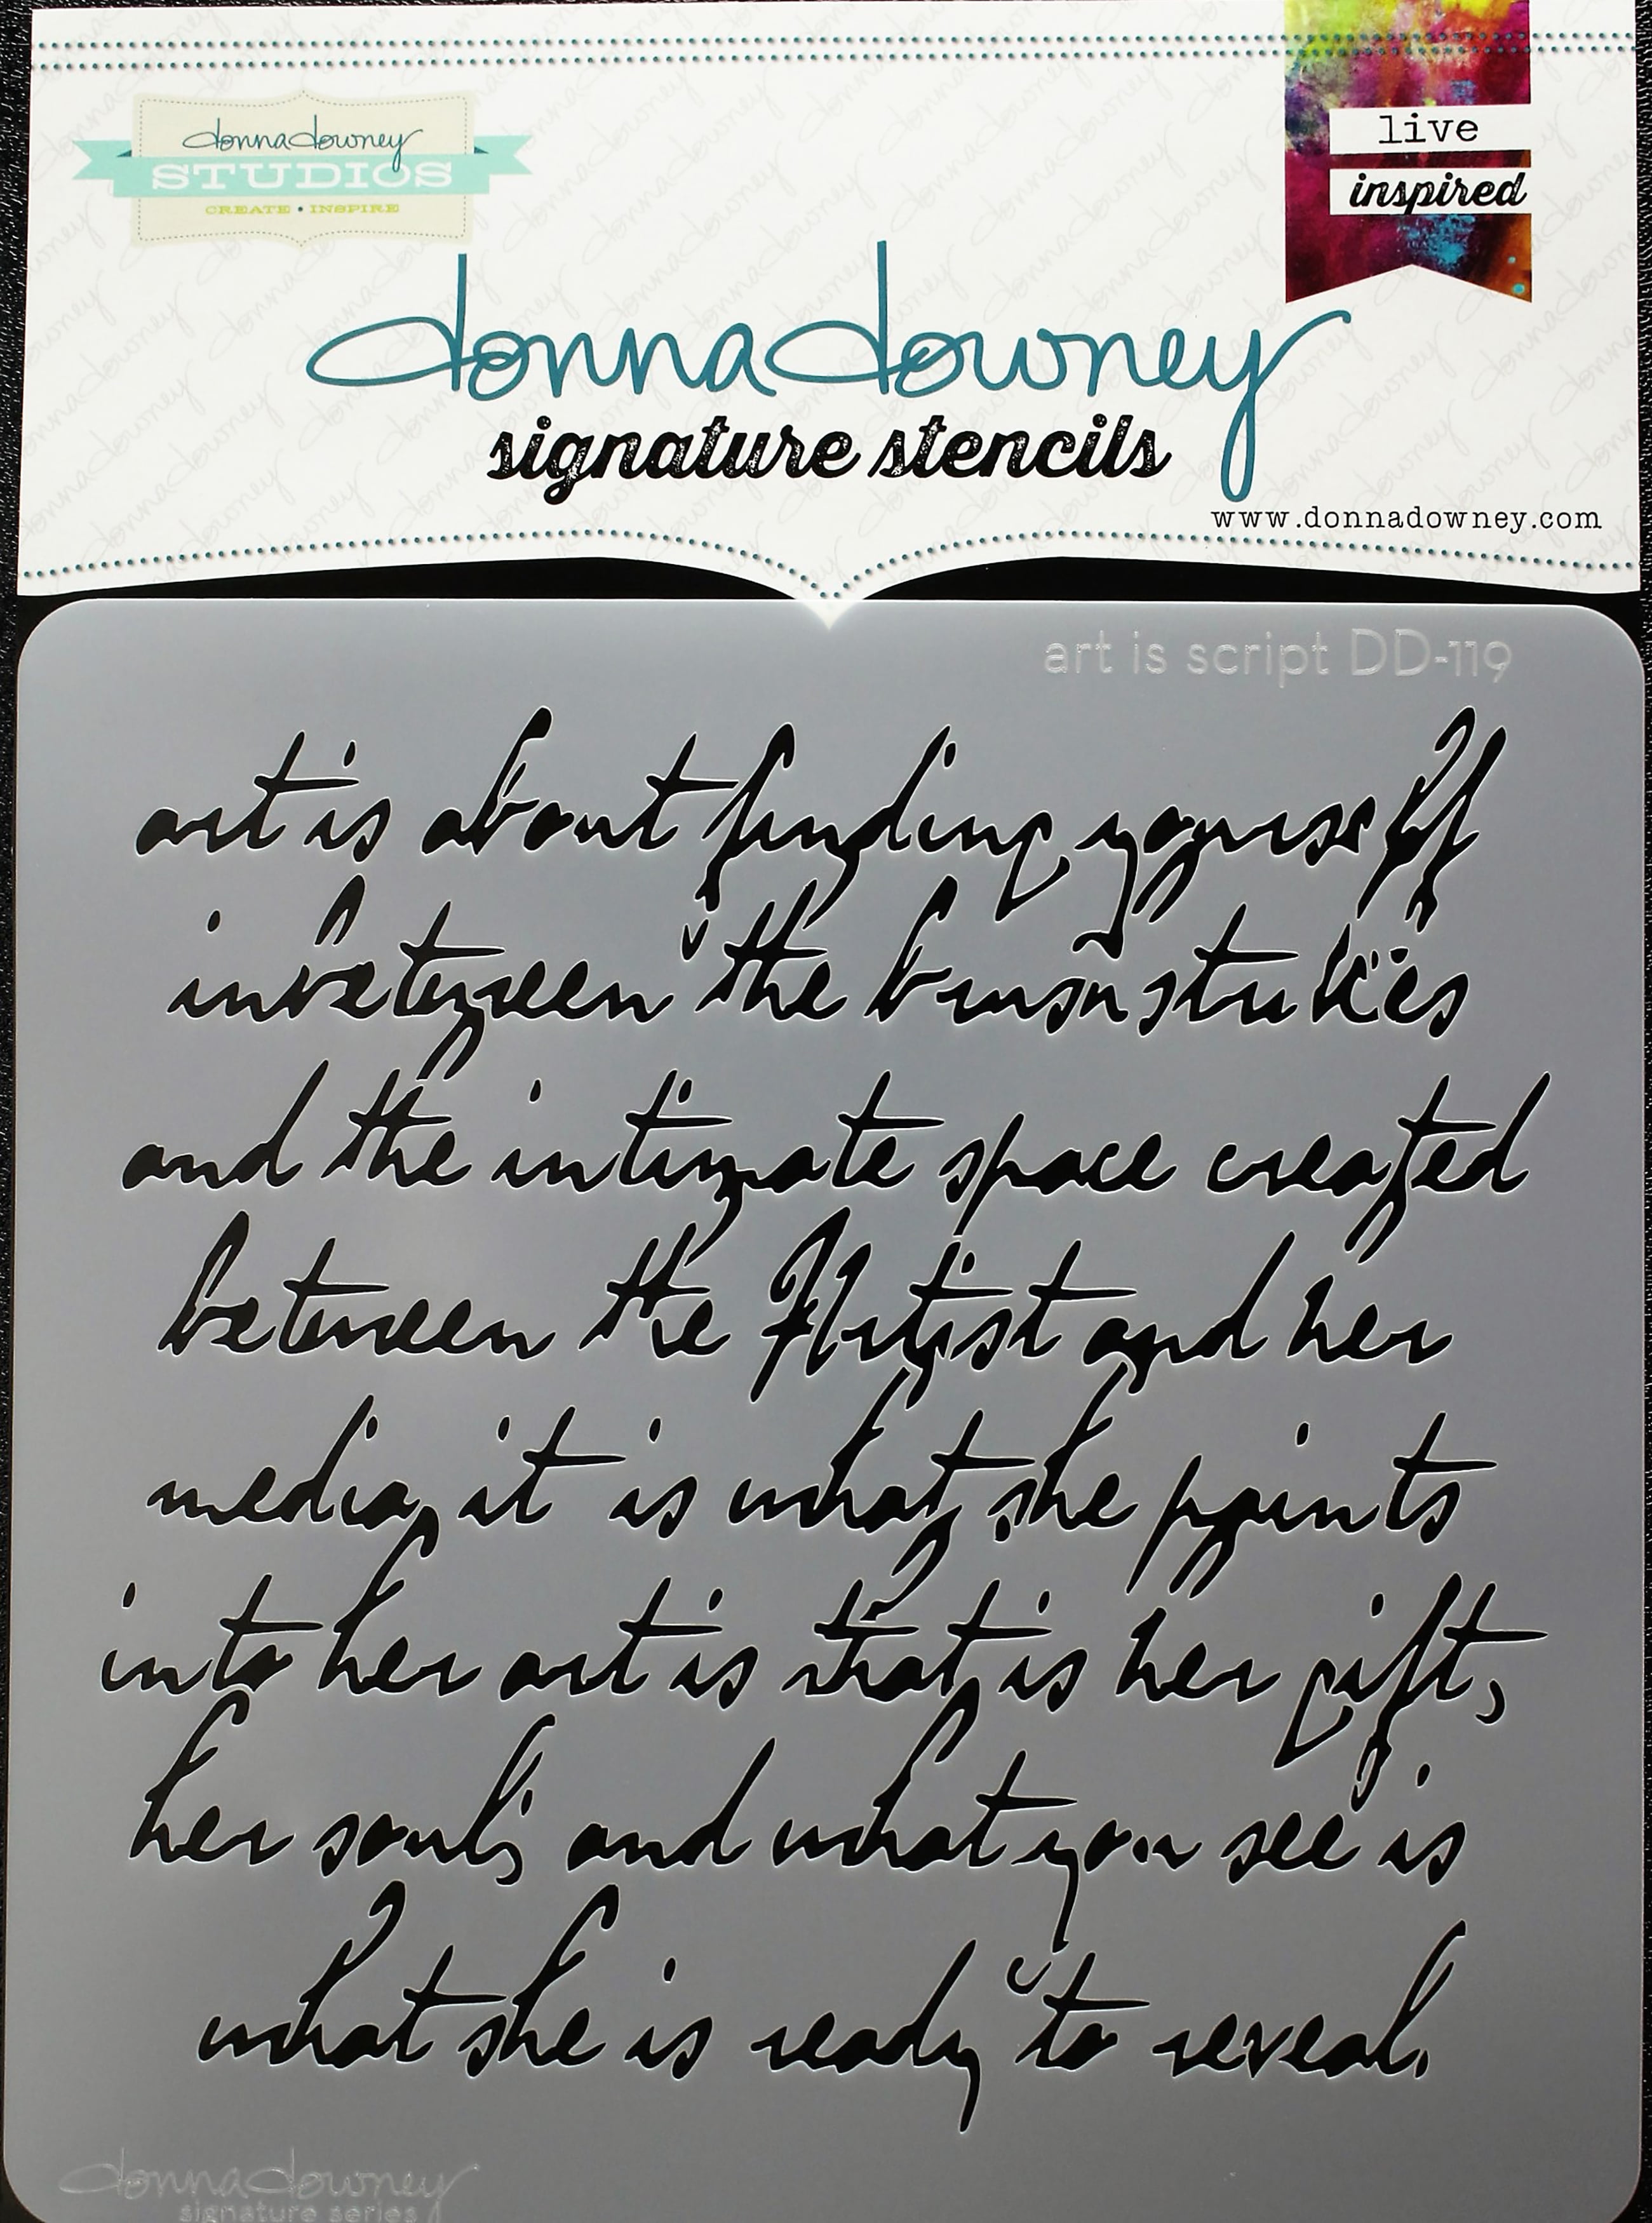 donna downey
STUDIOS
CREATE • INSPIRE
live
inspired
donna downey
signature stencils
www.donnadowney.com
art is script DD-119
art is about finding yourself
inbetween the brushstrokes
and the intimate space created
between the Artist and her
media, it is what she paints
into her art is that is her gift,
her soul; and what you see is
what she is ready to reveal.
donna downey
signature series